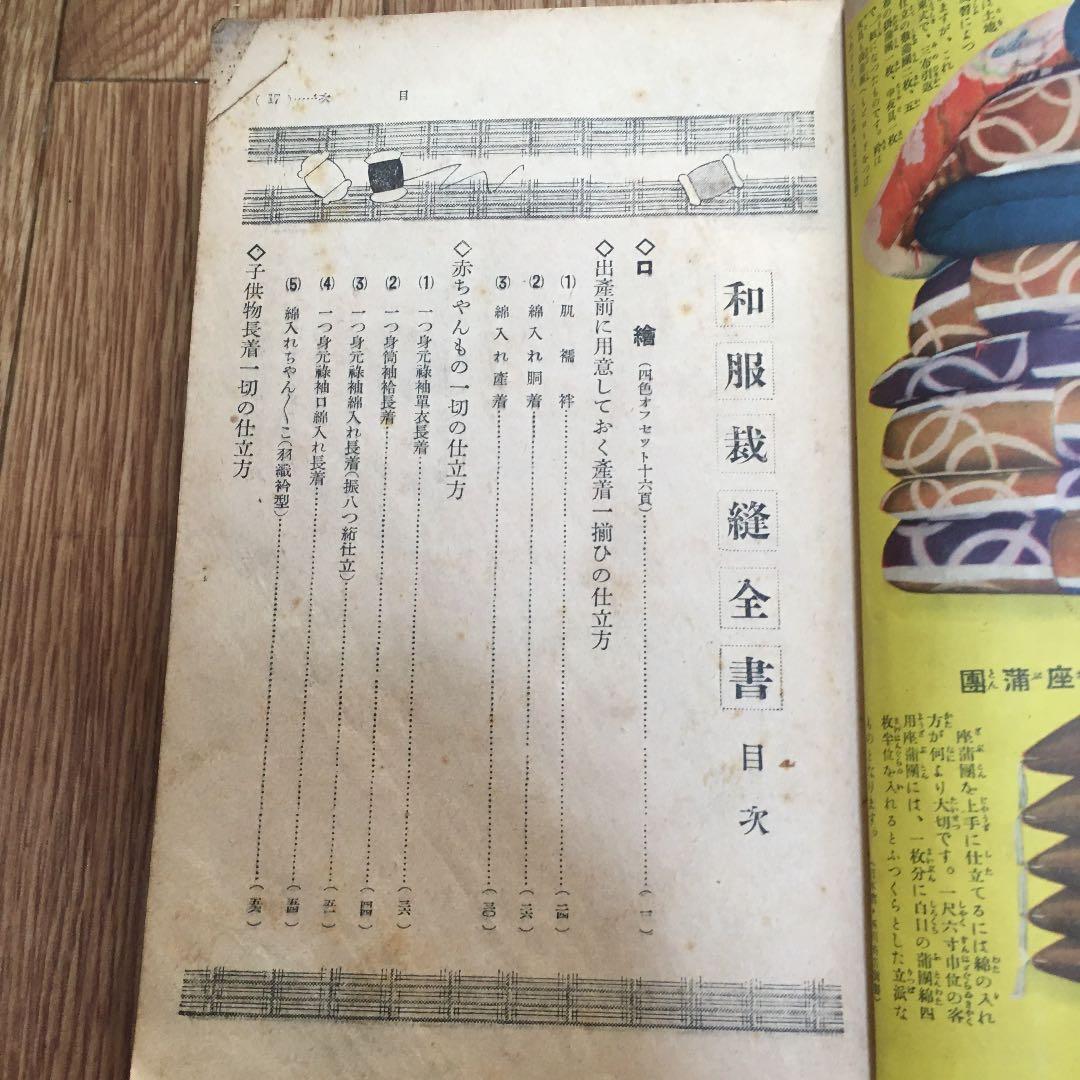 目次……(17)
和服裁縫全書 目次
◇口繪(四色オフセット十六頁)……(一)
◇出產前に用意しておく產着一揃ひの仕立方
(1) 肌襦袢……(二四)
(2) 綿入れ胴着……(二六)
(3) 綿入れ產着……(三〇)
◇赤ちやんもの一切の仕立方
(1) 一つ身元祿袖單衣長着……(三六)
(2) 一つ身筒袖袷長着
(3) 一つ身元祿袖綿入れ長着(振八つ絎仕立)……(四四)
(4) 一つ身元祿袖口綿入れ長着……(五一)
(5) 綿入れちやん〳〵こ(羽織衿型)……(五四)
◇子供物長着一切の仕立方……(五六)
座蒲團
座蒲團を上手に仕立てるには綿の入れ
方が何より大切です。一尺六寸巾位の客
用座蒲團には、一枚分に白目の蒲團綿四
枚半位を入れるとふつくらとした立派な
ものとなります。